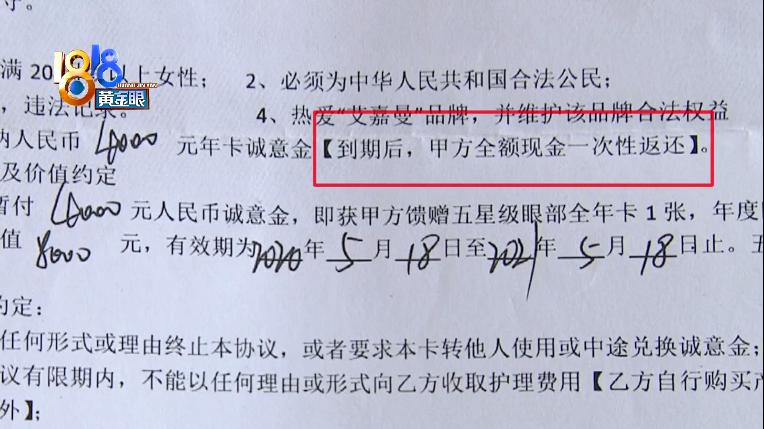 守。
1818
黄金眼
满20 以上女性； 2、必须为中华人民共和国合法公民；
，违法记录。 4、热爱“艾嘉曼”品牌，并维护该品牌合法权益
纳人民币 4000 元年卡诚意金【到期后，甲方全额现金一次性返还】。
及价值约定
暂付 4000 元人民币诚意金，即获甲方馈赠五星级眼部全年卡1张，年度
值 8000 元，有效期为2020年 5 月 18 日至2021年 5 月 18 日止。五
约定：
任何形式或理由终止本协议，或者要求本卡转他人使用或中途兑换诚意金；
议有限期内，不能以任何理由或形式向乙方收取护理费用【乙方自行购买产
外】；